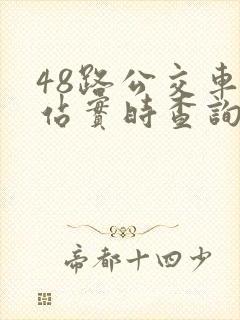 48路公交車
佔實時查詢
帝都十四少